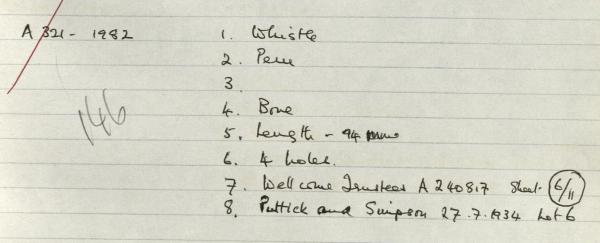 A 321 - 1982
1. Whistle
2. Peru
3.
146
4. Bone
5. Length - 94 mm
6. 4 holes.
7. Wellcome Trustees A 240817 Sheet. 6/11
8. Puttick and Simpson 27.7.1934 Lot 6